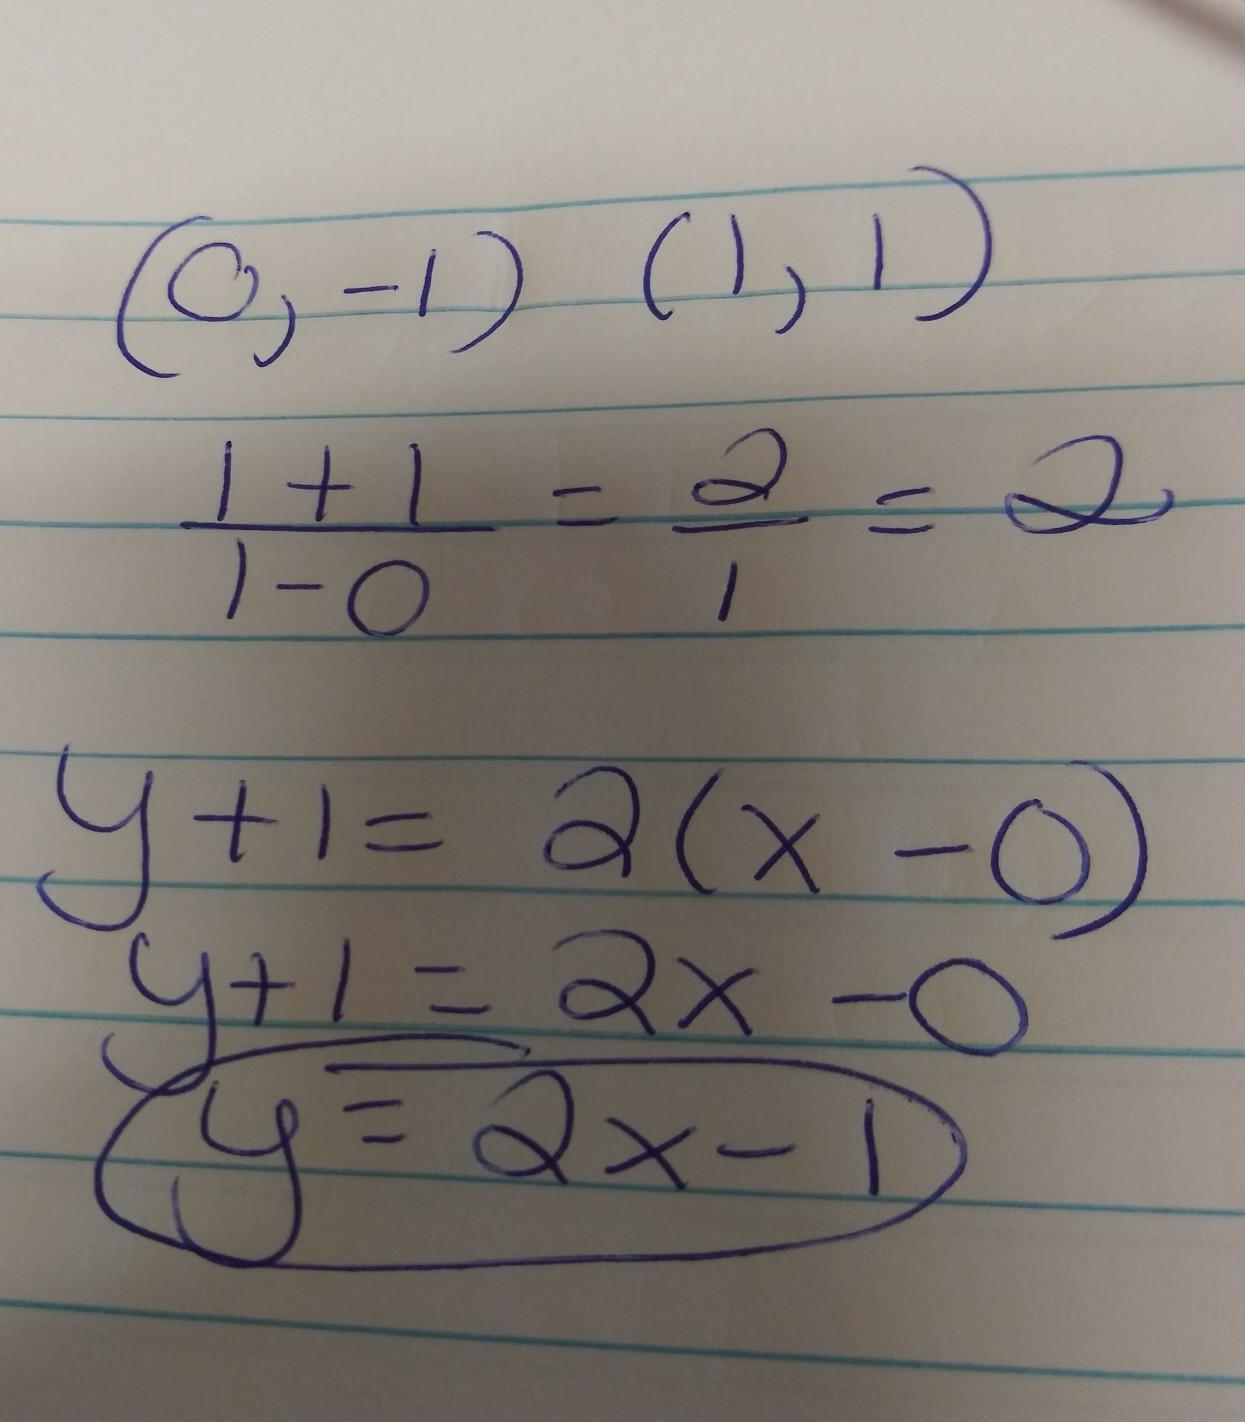 (0, -1) (1, 1)
1 + 1 / 1 - 0 = 2 / 1 = 2
y + 1 = 2(x - 0)
y + 1 = 2x - 0
y = 2x - 1